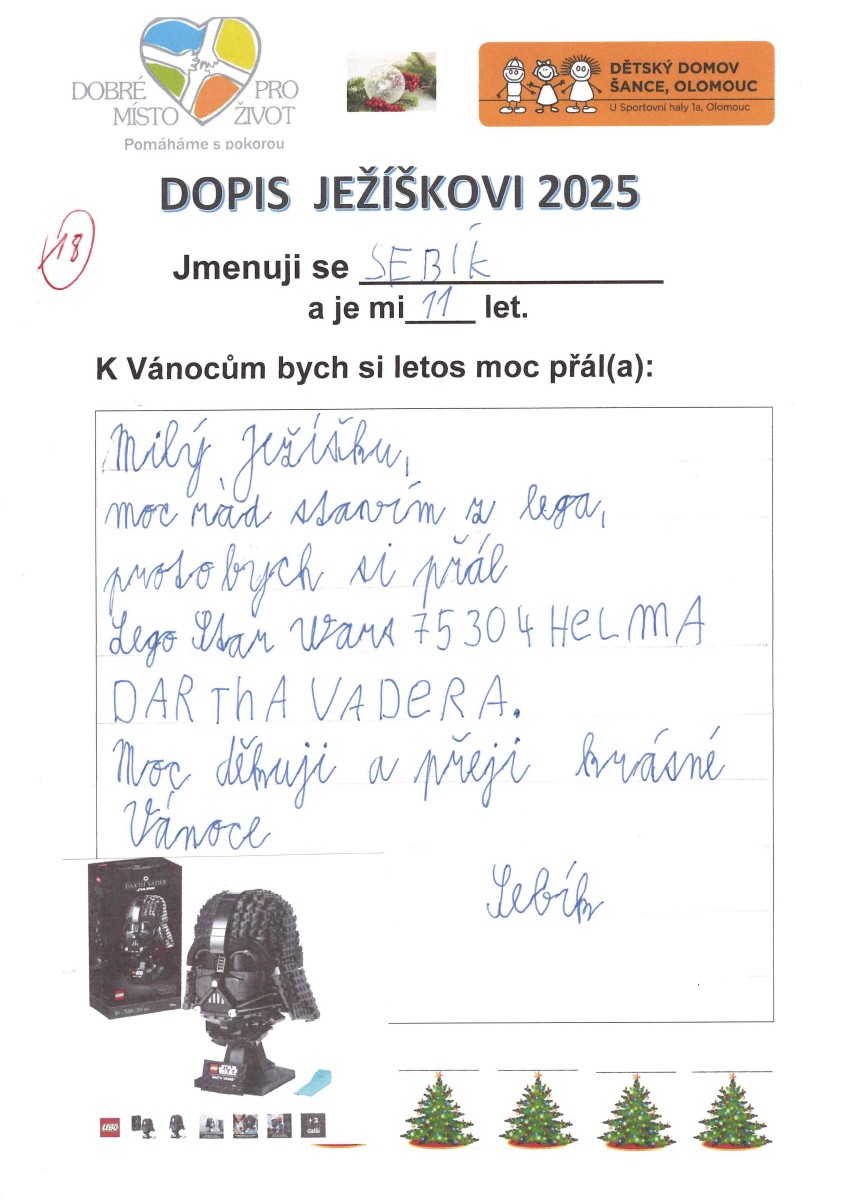 DOBRÉ PRO
MÍSTO ŽIVOT
Pomáháme s pokorou
DĚTSKÝ DOMOV
ŠANCE, OLOMOUC
U Sportovní haly 1a, Olomouc
DOPIS JEŽÍŠKOVI 2025
18
Jmenuji se SEBÍK
a je mi 11 let.
K Vánocům bych si letos moc přál(a):
Milý Ježíšku,
moc rád stavím z lega,
proto bych si přál
Lego Star Wars 75304 HeLMA
DARThA VADeRA.
Moc děkuji a přeji krásné
Vánoce
Sebík
DARTH VADER
STAR WARS
LEGO
LEGO STAR WARS
DARTH VADER
LEGO
+ 3
další